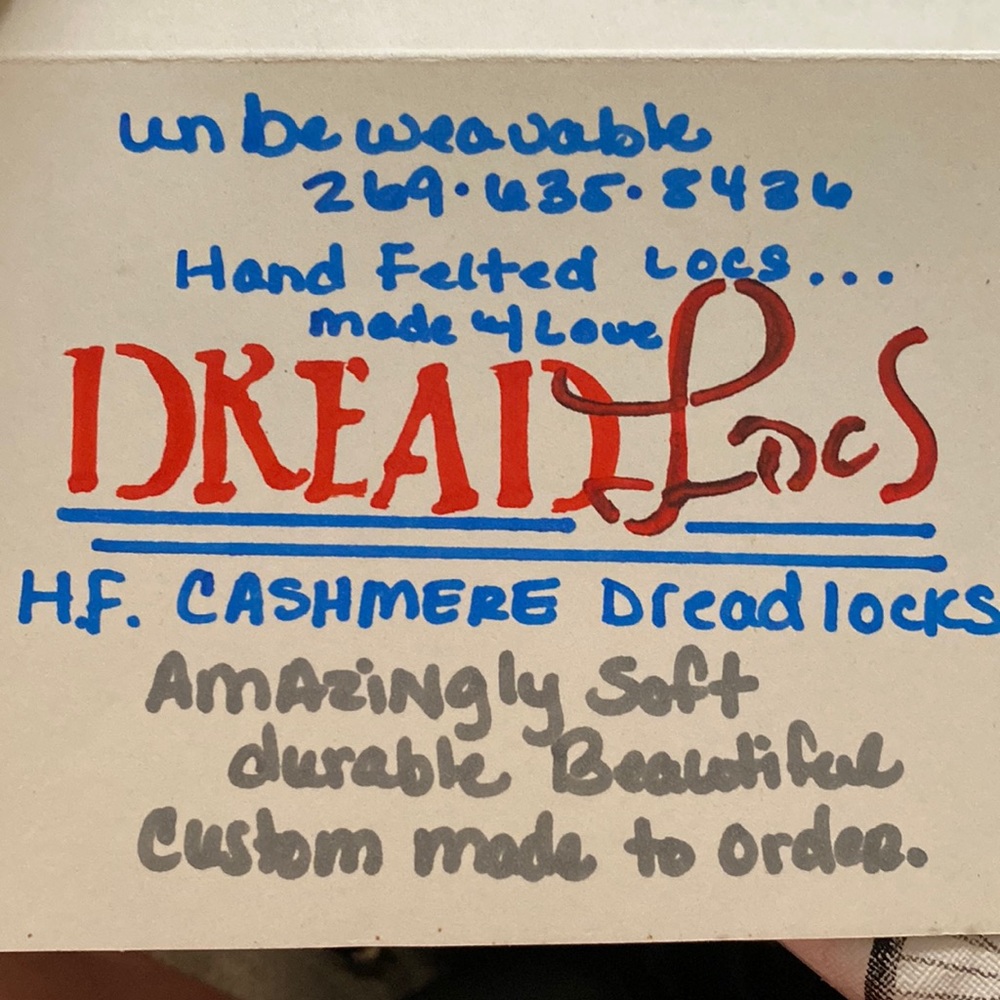 unbeweavable
269.635.8436
Hand Felted Locs...
made w/ Love
DREADLocS
H.F. CASHMERE Dreadlocks
AmAziNgly Soft
durable Beautiful
Custom made to order.